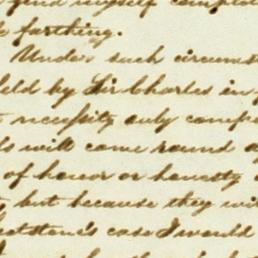 find myself comple
farthing.
Under such circumst
held by Sir Charles in
necessity only compe
will come round a
of honor or honesty
but because they wi
eatstone's case I would